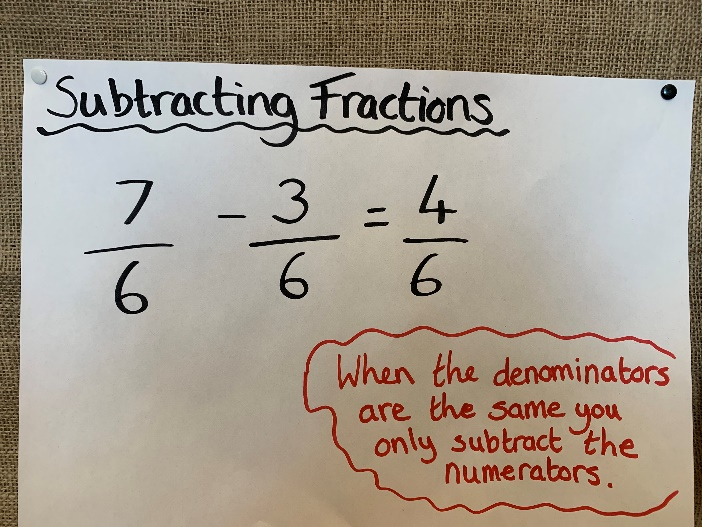 Subtracting Fractions
7/6 - 3/6 = 4/6
When the denominators
are the same you
only subtract the
numerators.